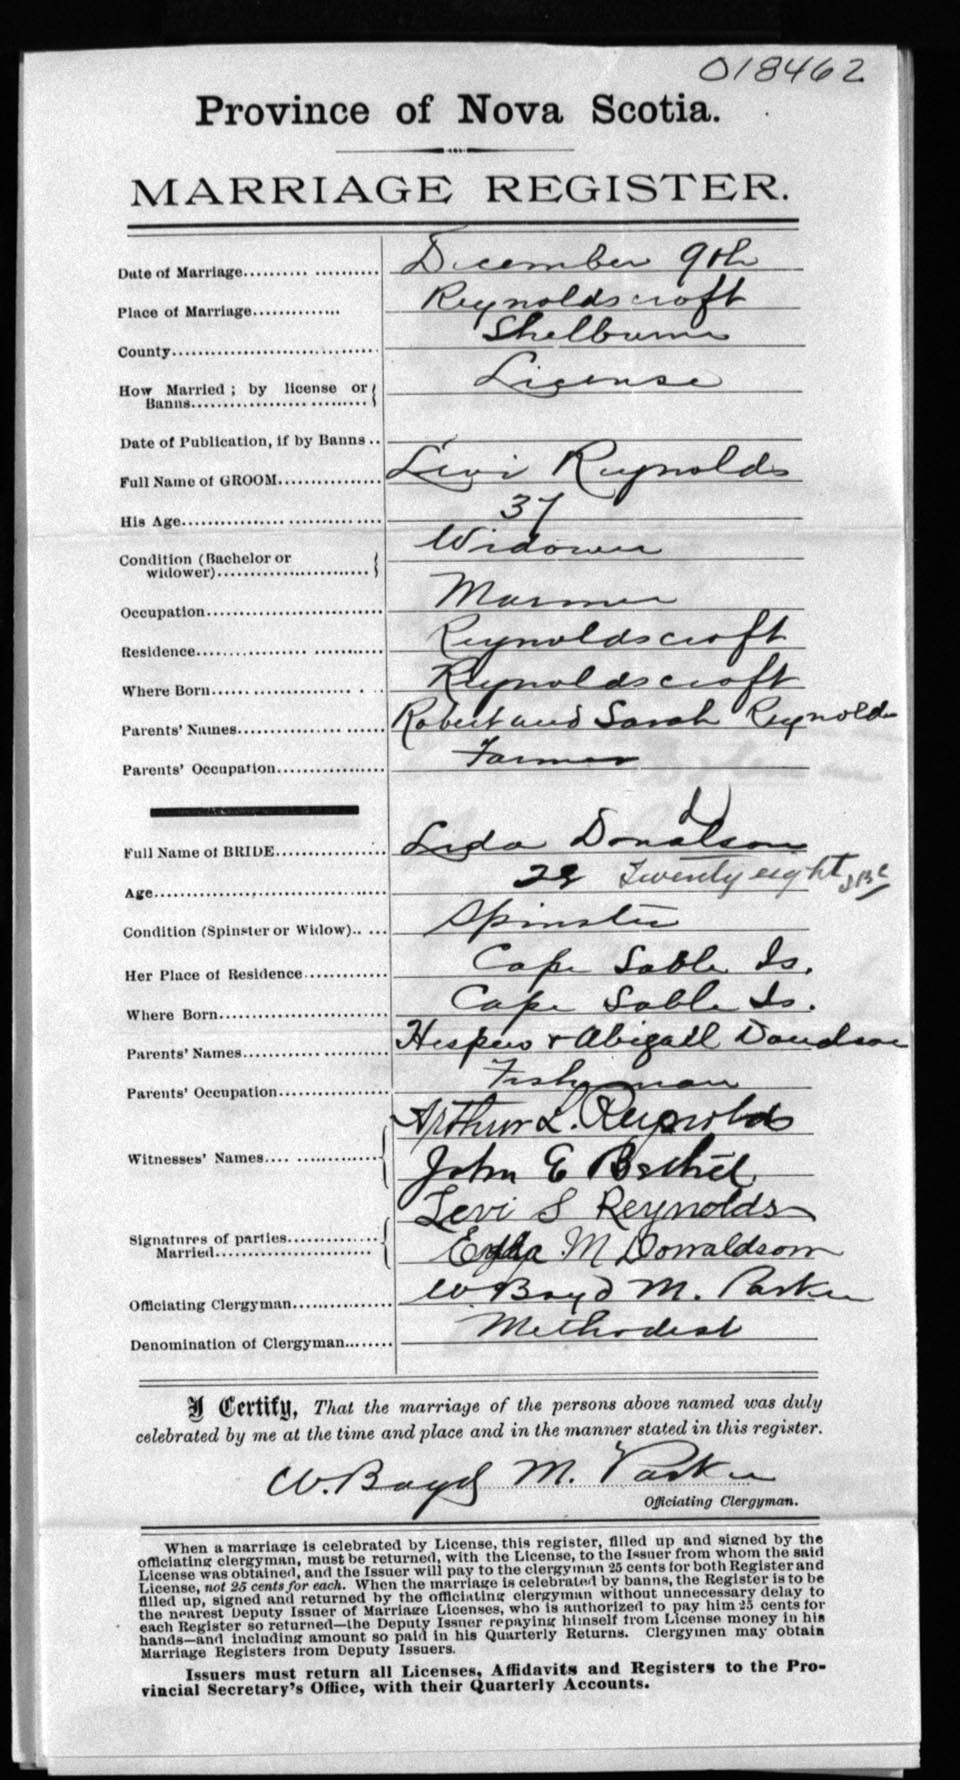 018462
Province of Nova Scotia.
MARRIAGE REGISTER.
Date of Marriage.......... .......... December 9th
Place of Marriage............. Reynoldscroft
County............................... Shelburne
How Married ; by license or Banns.................. ......... License
Date of Publication, if by Banns ..
Full Name of GROOM............... Levi Reynolds
His Age............... .............. 37
Condition (Bachelor or widower)...................... Widower
Occupation.......................... Mariner
Residence................ .......... Reynoldscroft
Where Born...... .............. . .. Reynoldscroft
Parents' Names............... ...... Robert and Sarah Reynolds
Parents' Occupation................ Farmer
d
Full Name of BRIDE................ Lida Donalson
Age.................................. 28 Twenty eight
Condition (Spinster or Widow).. ... Spinster
Her Place of Residence............ Cape Sable Is.
Where Born......................... Cape Sable Is.
Parents' Names........... ......... & Abigail
Parents' Occupation................ Fisherman
Witnesses' Names.... ............. Arthur L. Reynolds
John E Bethel
Signatures of parties Married....................... Levi S Reynolds
M Donaldson
Officiating Clergyman............... W Boyd M. Parker
Denomination of Clergyman........ Methodist
I Certify, That the marriage of the persons above named was duly
celebrated by me at the time and place and in the manner stated in this register.
W. Boyd M. Parker
Officiating Clergyman.
When a marriage is celebrated by License, this register, filled up and signed by the
officiating clergyman, must be returned, with the License, to the Issuer from whom the said
License was obtained, and the Issuer will pay to the clergyman 25 cents for both Register and
License, not 25 cents for each. When the marriage is celebrated by banns, the Register is to be
filled up, signed and returned by the officiating clergyman without unnecessary delay to
the nearest Deputy Issuer of Marriage Licenses, who is authorized to pay him 25 cents for
each Register so returned—the Deputy Issuer repaying himself from License money in his
hands—and including amount so paid in his Quarterly Returns. Clergymen may obtain
Marriage Registers from Deputy Issuers.
Issuers must return all Licenses, Affidavits and Registers to the Pro-
vincial Secretary's Office, with their Quarterly Accounts.